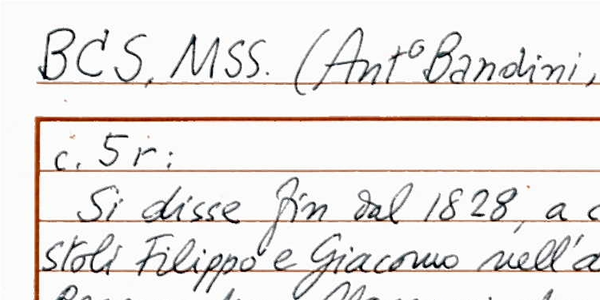 BCS, MSS. (Antº Bandini,
c. 5 r:
Si disse fin dal 1828, a c
stoli Filippo e Giacomo nell'a